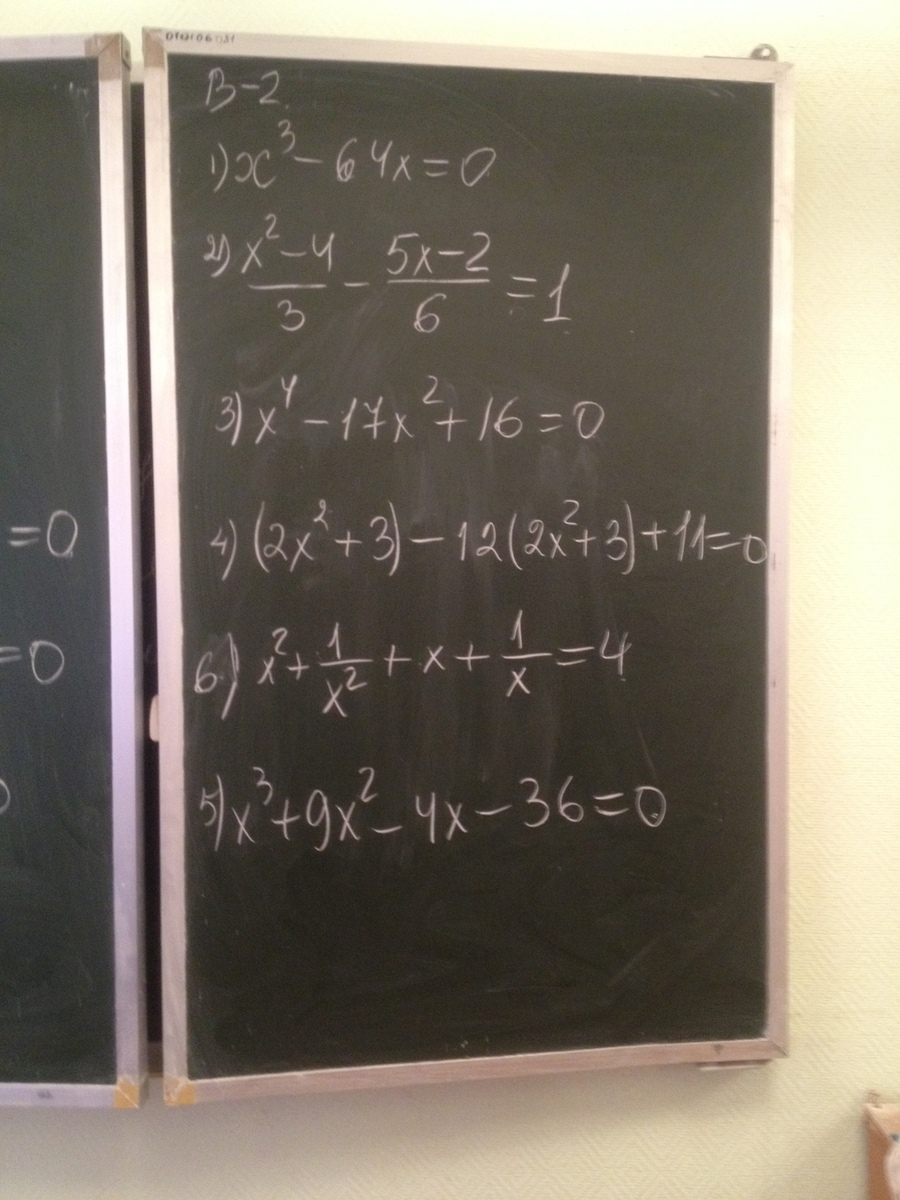 В-2.
1) x³ - 64x = 0
2) (x² - 4)/3 - (5x - 2)/6 = 1
3) x⁴ - 17x² + 16 = 0
=0
4) (2x² + 3) - 12(2x² + 3) + 11 = 0
=0
6) x² + 1/x² + x + 1/x = 4
5) x³ + 9x² - 4x - 36 = 0